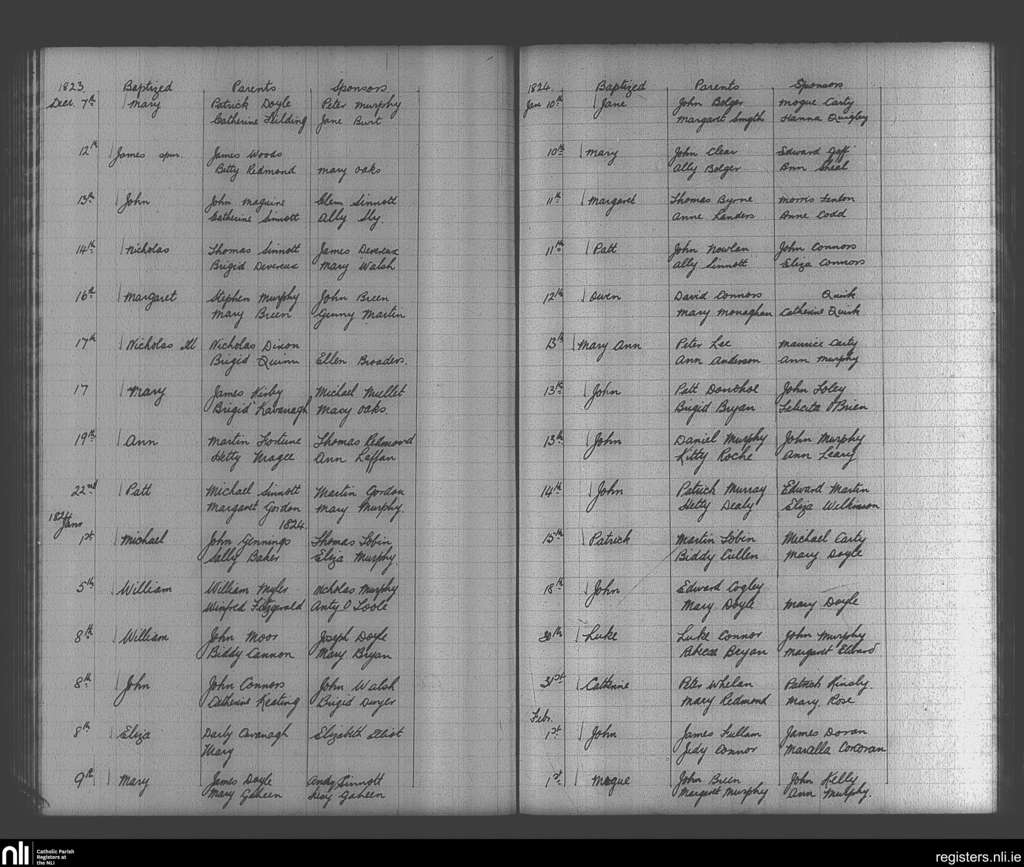 1823 Baptized Parents Sponsors
Dec. 7th Mary Patrick Doyle Peter Murphy
Catherine Fielding Jane Burt
12th James spur. James Woods
Betty Redmond Mary Oaks
13th John John Maguire Clem Sinnott
Catherine Sinnott Ally Sly
14th Nicholas Thomas Sinnott James Devereux
Brigid Devereux Mary Walsh
16th Margaret Stephen Murphy John Breen
Mary Breen Genny Martin
17th Nicholas Ill Nicholas Dixon
Brigid Quinn Ellen Broaders.
17 Mary James Kirby Michael Mullet
Brigid Kavanagh Mary Oaks
19th Ann Martin Fortune Thomas Redmond
Hetty Magee Ann Laffan
22nd Patt Michael Sinnott Martin Gordon
Margaret Gordon Mary Murphy
1824 1824.
Jany
1st Michael John Gennings Thomas Tobin
Sally Baker Eliza Murphy
5th William William Myler Nicholas Murphy
Winifred Fitzgerald Anty O Toole
8th William John Moor Joseph Doyle
Biddy Cannon Mary Bryan
8th John John Connors John Walsh
Catherine Keating Brigid Dwyer
8th Eliza Darly Cavanagh Elizabeth Eliot
Mary
9th Mary James Doyle Andy Sinnott
Mary Gaheen Gaheen
1824 Baptized Parents Sponsors
Jan 10th Jane John Bolger Mogue Carty
Margaret Smyth Hanna Quigley
10th Mary John Clear Edward Goff
Ally Bolger Ann Sheal
11th Margaret Thomas Byrne Morris Fenton
Anne Landers Anne Codd
11th Patt John Nowlan John Connors
Ally Sinnott Eliza Connors
12th Owen David Connors Quirk
Mary Monaghan Catherine Quirk
13th Mary Ann Peter Lee Maurice Carty
Ann Anderson Ann Murphy
13th John Patt Donohoe John Foley
Brigid Bryan Felicita O'Brien
13th John Daniel Murphy John Murphy
Kitty Roche Ann Leary
14th John Patrick Murray Edward Martin
Hetty Dealy Eliza Wilkinson
15th Patrick Martin Tobin Michael Carty
Biddy Cullen Mary Doyle
18th John Edward Cogley
Mary Doyle Mary Doyle
30th Luke Luke Connor John Murphy
Bryan Margaret
31st Catherine Peter Whelan Patrick Kinsly.
Mary Redmond Mary Rose
Feb.
1st John James Fullam James Doran
Judy Connor Maralla Corcoran
1st Mogue John Breen John Kelly
Margaret Murphy Ann Murphy.
nli Catholic Parish
Registers at
the NLI
registers.nli.ie